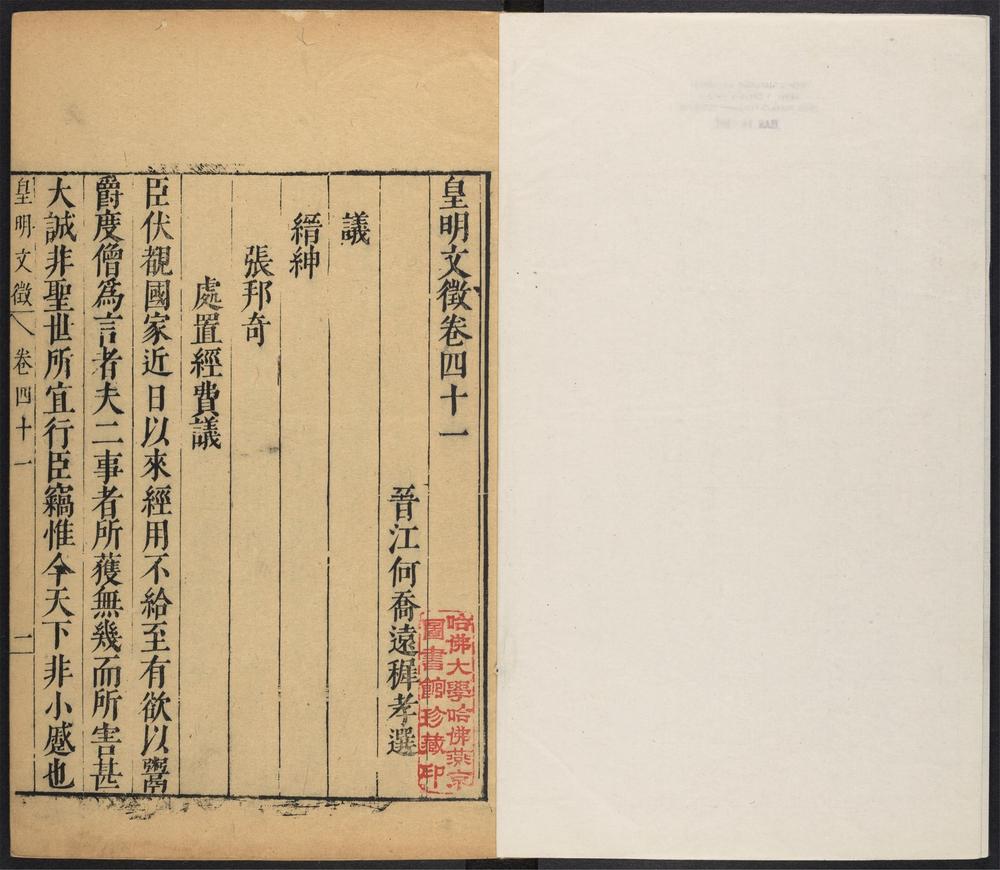 皇明文徵卷四十一
晉江何喬遠穉孝選
議
縉紳
張邦奇
處置經費議
臣伏覩國家近日以來經用不給至有欲以鬻
爵度僧爲言者夫二事者所獲無幾而所害甚
大誠非聖世所宜行臣竊惟今天下非小慼也
皇明文徵 卷四十一 一
哈佛大學哈佛燕京
圖書館珍藏印